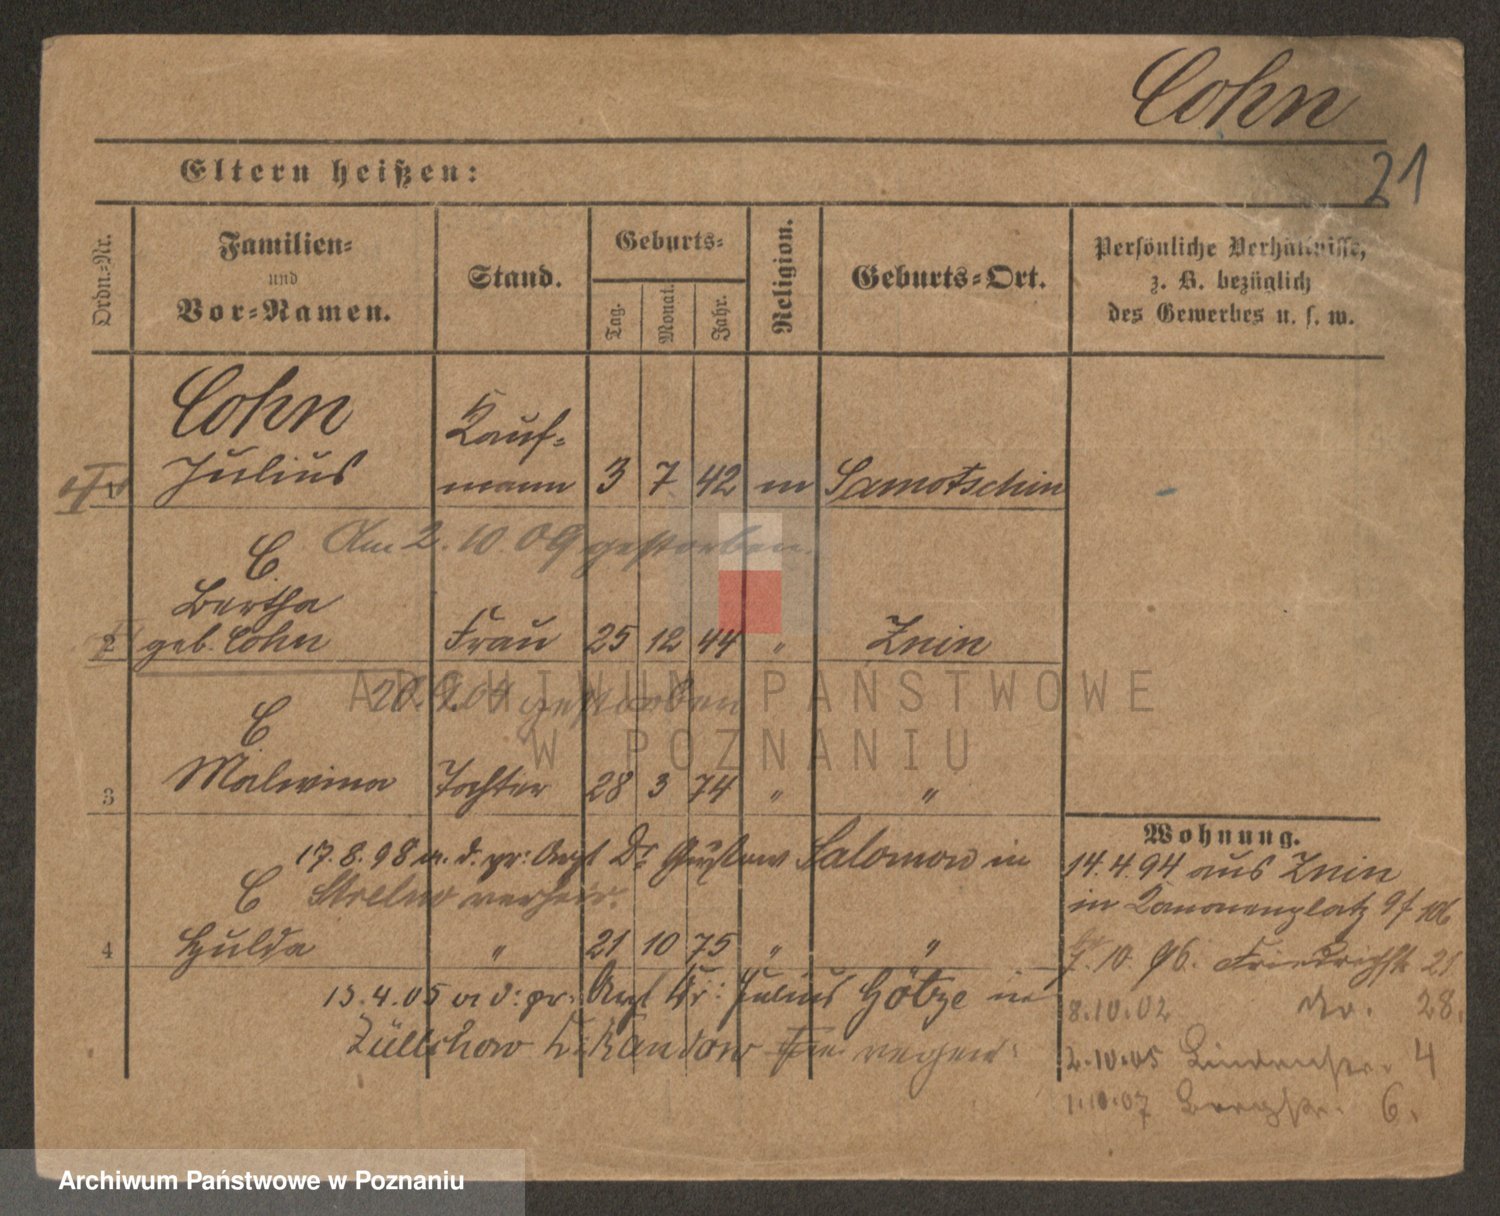 Cohn
21
Eltern heißen:
Ordn.-Nr.
Familien-
und
Vor-Namen.
Stand.
Geburts-
Tag.
Monat.
Jahr.
Religion.
Geburts-Ort.
Persönliche Verhältnisse,
z. B. bezüglich
des Gewerbes u. s. w.
Cohn
Julius
Kauf-
mann 3 7 42 m Samotschin
Am 2. 10. 09 gestorben.
C
Bertha
2 geb. Cohn Frau 25 12 44 " Znin
gestorben
C
3 Malwina Tochter 28 3 74 " "
17. 8. 98 m. d. pr: Arzt Dr Gustav Salomon in
C Strelno verheir.
4 Hulda " 21 10 75 " "
13. 4. 05 m d: pr. Arzt Dr: Julius Götze in
Züllchow Kr. Randow
Wohnung.
14. 4. 94 aus Znin
in Kanonenplatz
7. 10. 96. Friedrichstr 21
8. 10. 02 No. 28.
2. 10. 05 Lindenstr. 4
1. 10. 07 Bergstr. 6.
ARCHIWUM PAŃSTWOWE
W POZNANIU
Archiwum Państwowe w Poznaniu